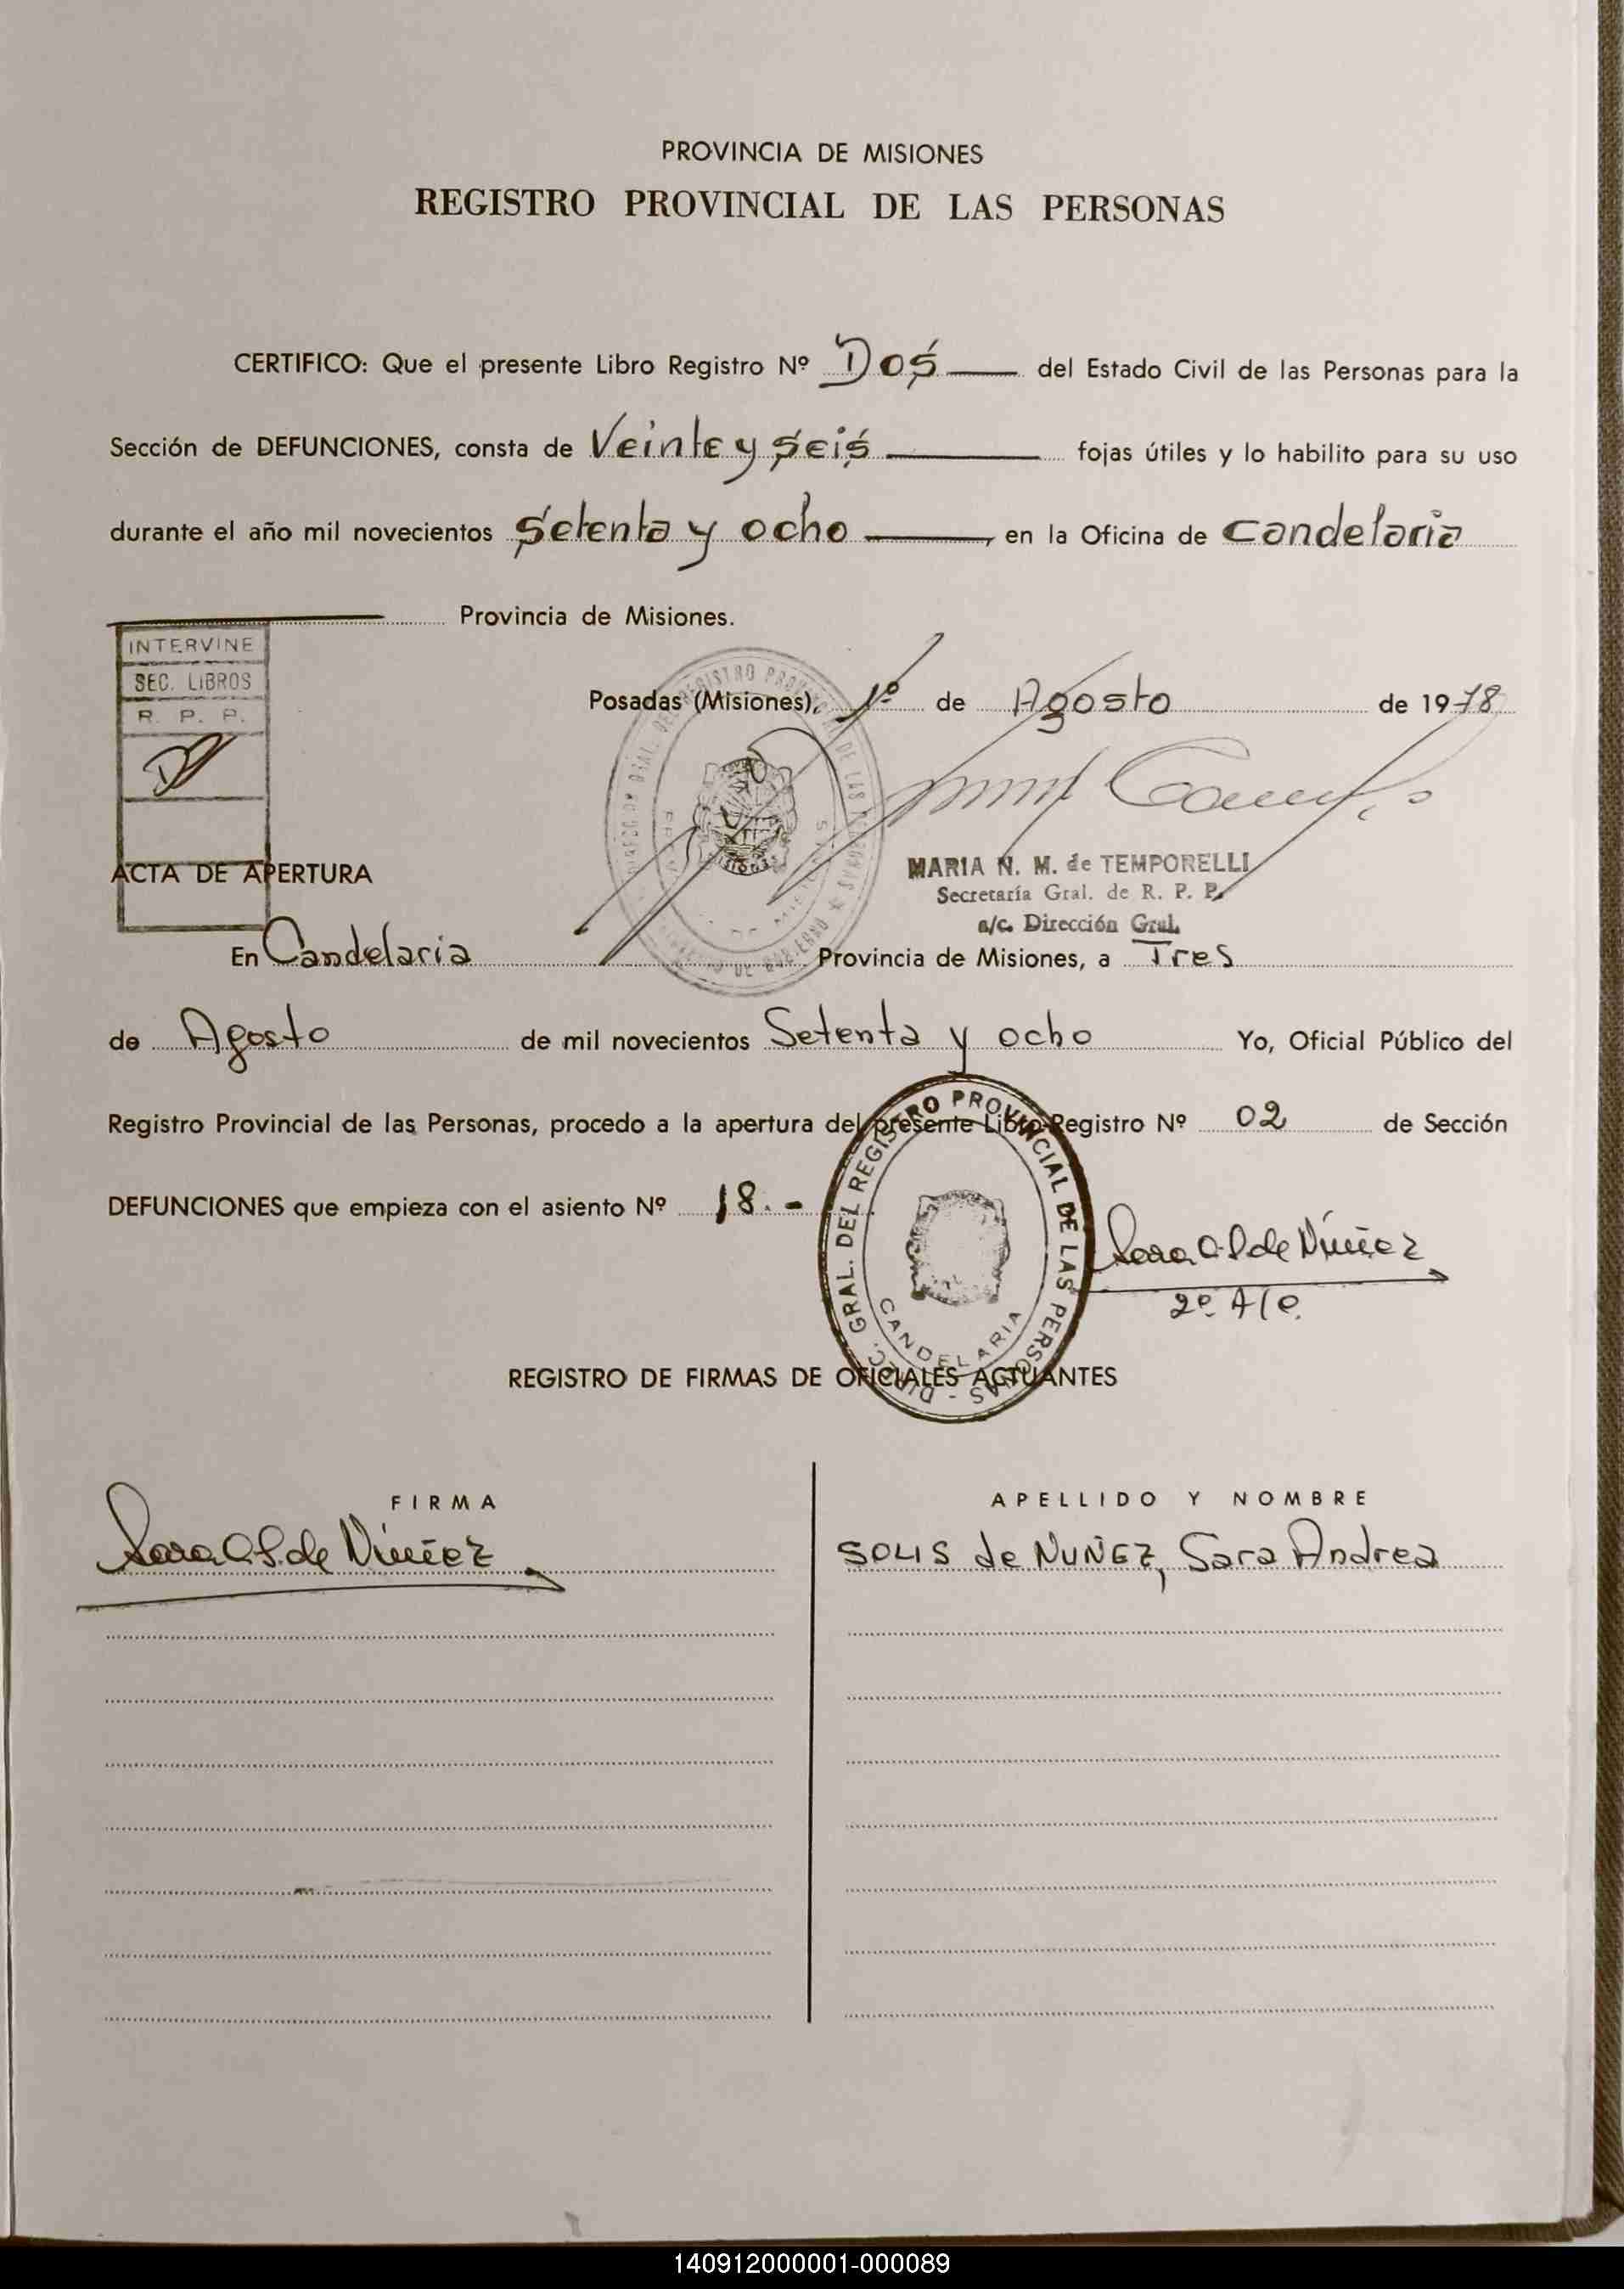 PROVINCIA DE MISIONES
REGISTRO PROVINCIAL DE LAS PERSONAS
CERTIFICO: Que el presente Libro Registro Nº Dos del Estado Civil de las Personas para la
Sección de DEFUNCIONES, consta de Veinte y seis fojas útiles y lo habilito para su uso
durante el año mil novecientos setenta y ocho en la Oficina de Candelaria
Provincia de Misiones.
INTERVINE
SEC. LIBROS
R. P. P.
Posadas (Misiones), 1º de Agosto de 1978
MARIA N. M. de TEMPORELLI
Secretaría Gral. de R. P. P.
a/c. Dirección Gral.
ACTA DE APERTURA
En Candelaria Provincia de Misiones, a Tres
de Agosto de mil novecientos Setenta y ocho Yo, Oficial Público del
Registro Provincial de las Personas, procedo a la apertura del presente Libro Registro Nº 02 de Sección
DEFUNCIONES que empieza con el asiento Nº 18.-
DIREC. GRAL. DEL REGISTRO PROVINCIAL DE LAS PERSONAS -
CANDELARIA
Sara A. S. de Núñez
REGISTRO DE FIRMAS DE OFICIALES ACTUANTES
FIRMA
APELLIDO Y NOMBRE
Sara A. S. de Núñez
SOLIS de NUÑEZ, Sara Andrea
140912000001-000089